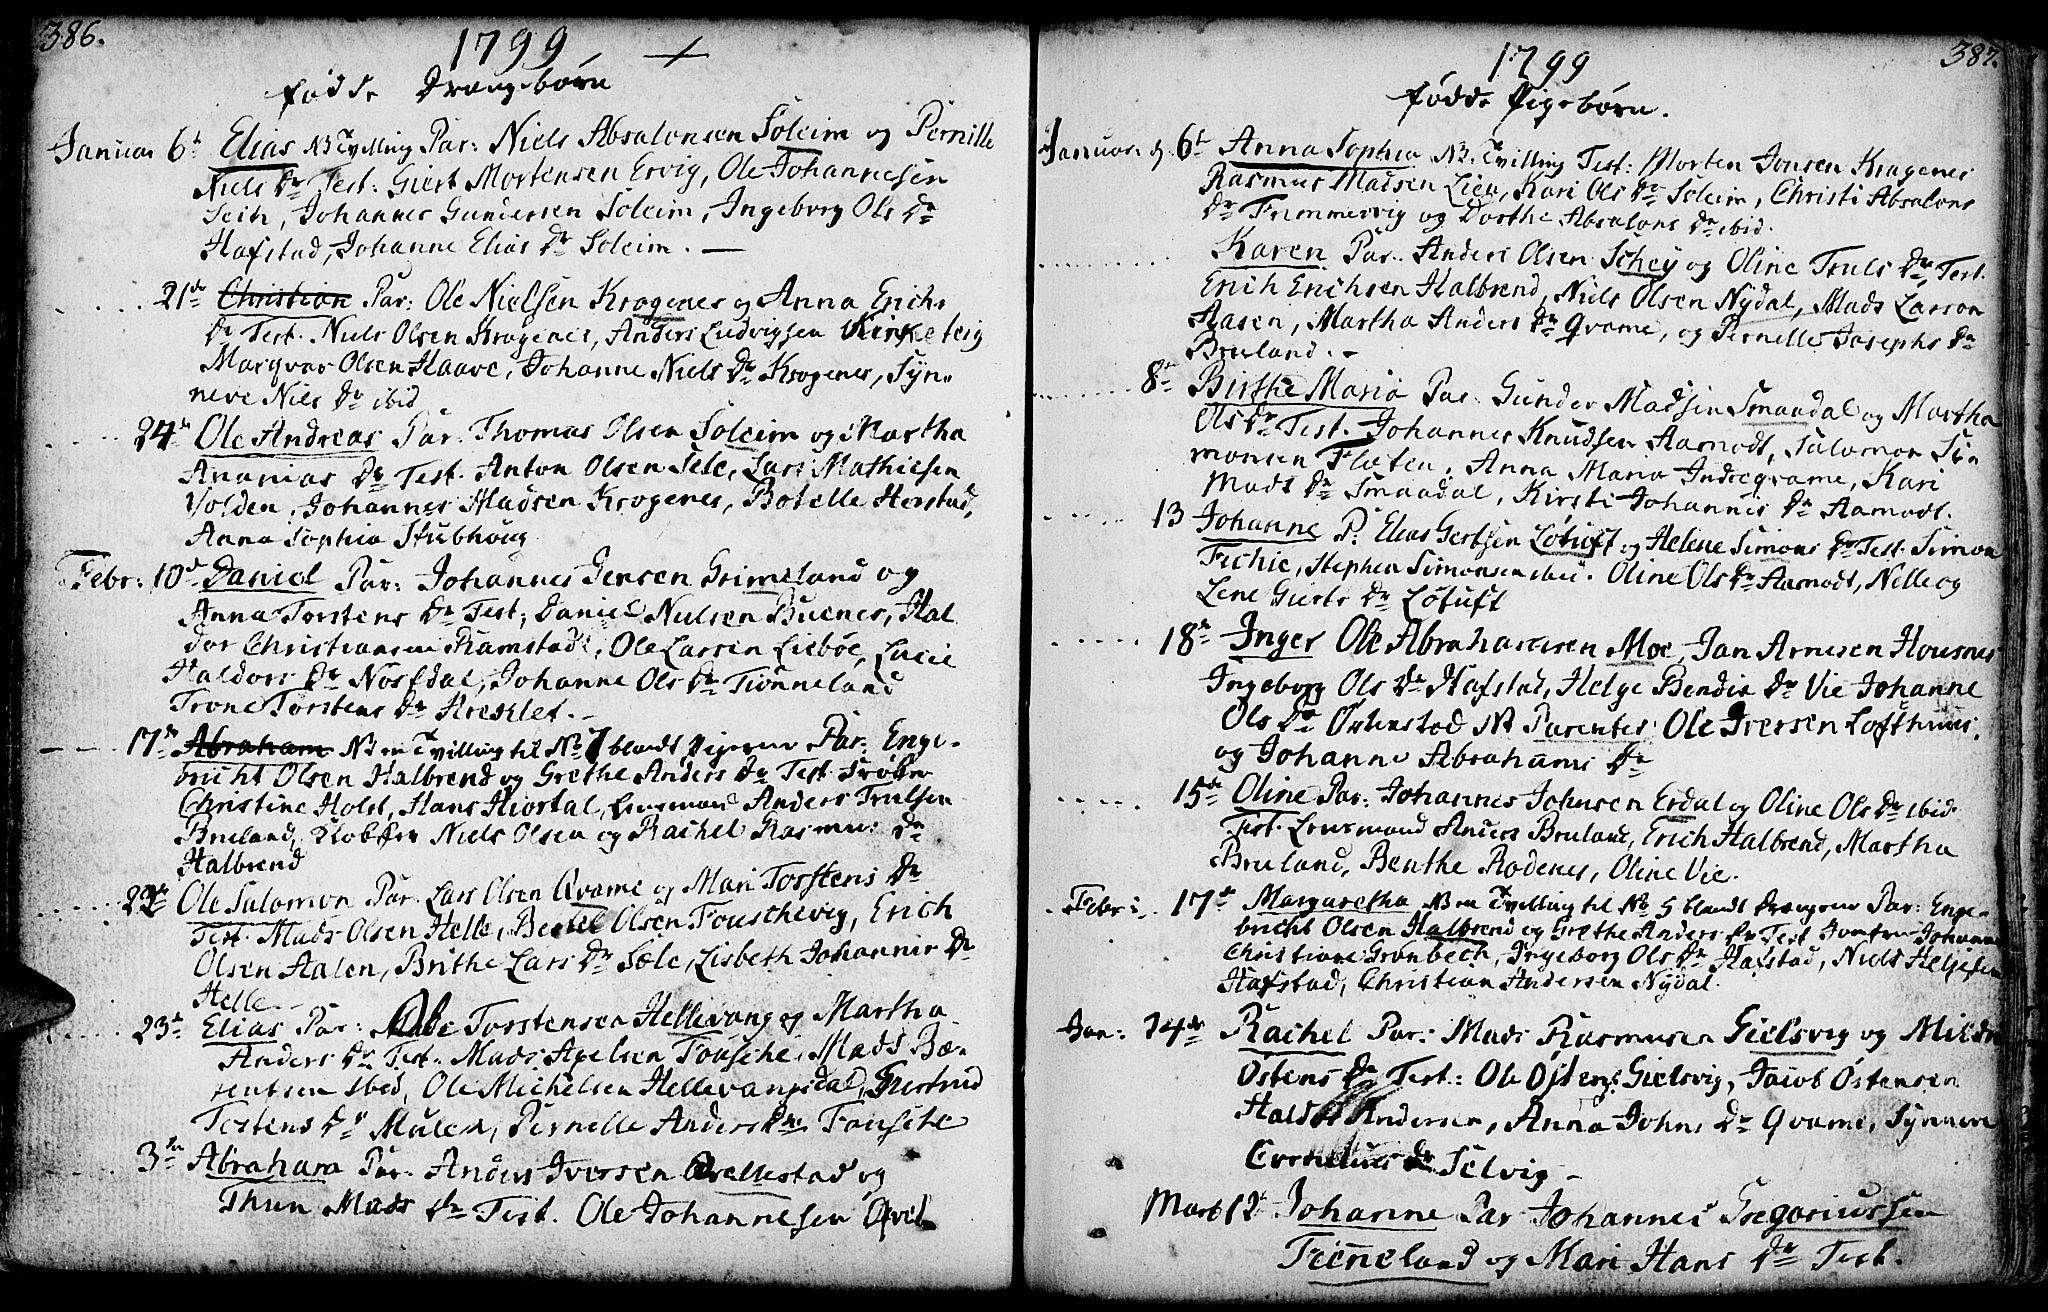 386.
1799
fødde Drængebørn
Januar 6t Elias NB Tvilling Par: Niels Absalonsen Soleim og Pernille
Niels Dr Test: Giert Mortensen Ervig, Ole Johannesen
Seih, Johannes Gundersen Soleim, Ingeborg Ols Dr
Hafstad, Johanne Elias Dr Soleim. —
21de Christian Par: Ole Nielsen Krogenes og Anna Erichs
Dr Test. Niels Olsen Krogenes, Anders Ludvigsen Kirketeig
Marqvar Olsen Haave, Johanne Niels Dr Krogenes, Syn„
neve Niels Dr ibid
24de Ole Andreas Par. Thomas Olsen Soleim og Martha
Ananias Dr Test. Anton Olsen Sele, Lars Mathiesen
Volden, Johannes Madsen Krogenes, Botelle Herstad,
Anna Sophia Stubhoug
Febr: 10d Daniel Par: Johannes Jensen Grimeland og
Anna Torstens Dr Test; Daniel Nielsen Buenes, Hal
dor Christiansen Ramstad, Ole Larsen Liebøe, Lucie
Haldors Dr Nosfdal, Johanne Ols Dr Tiønneland
Trone Torstens Dr Areklet. –
17de Abraham NB en Tvilling til No 7 blandt Pigerne Par: Enge-
bricht Olsen Halbrend og Grethe Anders Dr Test. Frøken
Christine Holst, Hans Hiortal, Lensmand Anders Trulsen
Bruland, Klokker Niels Olsen og Rachel Rasmus Dr
Halbrend
22de Ole Salomon Par. Lars Olsen Qvame og Mari Torstens Dr
Test. Mads Olsen Helle, Bertel Olsen Fouschevig, Erich
Olsen Aalen, Brithe Lars Dr Sæle, Lisbeth Johannis Dr
Helle.
23de Elias Par: Ole Torstensen Hellevang og Martha
Anders Dr Test. Mads Axelsen Fousche, Mads Bæ-
rentsen ibid, Ole Michelsen Hellevangsdal, Giertrud
Tostens Dr Mulen, Pernelle Anders Dr Fousche
3de Abraham Par. Anders Iversen Qvellestad og
Thun Mads Dr Test. Ole Johannesen Qvel„
387.
1799
fødde Pigebørn.
Januar d. 6t Anna Sophia NB. Tvilling Test: Morten Jonsen Krogenes
Rasmus Madsen Lien, Kari Ols Dr Soleim, Christi Absalons
Dr Frammervig og Dorthe Absalons Dr ibid.
Karen Par. Anders Olsen Schey og Oline Truls Dr, Test.
Erich Erichsen Halbrend, Niels Olsen Nydal, Mads Larson
Hasen, Martha Anders Dr Qvame, og Pernelle Josephs Dr
Bruland. –
8de Birthe Maria Par. Gunder Madsen Smaadal og Martha
Ols Dr Test. Johannes Knudsen Aamodt, Salomon Si„
monsen Floten, Anna Maria Indreqvame, Kari
Mads Dr Smaadal, Kirsti Johannis Dr Aamodt.
13 Johanne P. Elias Gertsen Løtuft og Helene Simons Dr Test. Simon
Fichie, Stephen Simonsen ibid. Oline Ols Dr Aamodt, Nille og
Lene Gierts Dr Løtuft
18de Inger Ole Abrahamsen Moe, Jan Arnesen Housnes
Ingeborg Ols Dr Hafstad, Helge Bendix Dr Vie Johanne
Ols Dr Østenstad NB Parentes Ole Iversen Lofthuus,
og Johanne Abrahams Dr
15de Oline Par: Johannes Johnsen Erdal og Oline Ols Dr ibid.
Test. Lensmand Anders Bruland, Erich Halbrend, Martha
Bruland, Benthe Rodenes, Oline Vie.
Febr: 17de Margaretha NB en Tvilling til No 5 blandt Drengene Par: Enge-
bricht Olsen Halbrend og Grethe Anders Dr Test Jomfru Johanna
Christiane Grønbech, Ingeborg Ols Dr Hafstad, Niels Helgesen
Hafstad, Christian Andersen Nydal.
Jan: 14de Rachel Par: Mads Rasmusen Gielsvig og Mildri
Østens Dr Test: Ole Østens: Gielsvig, Jacob Østensen
Haldor Andersen, Anna Johns Dr Qvame, Synneve
Cornelius Dr Selvig –
Mart 12t Johanne Par Johannes Gregoriussen
Tienneland og Mari Hans Dr Test.